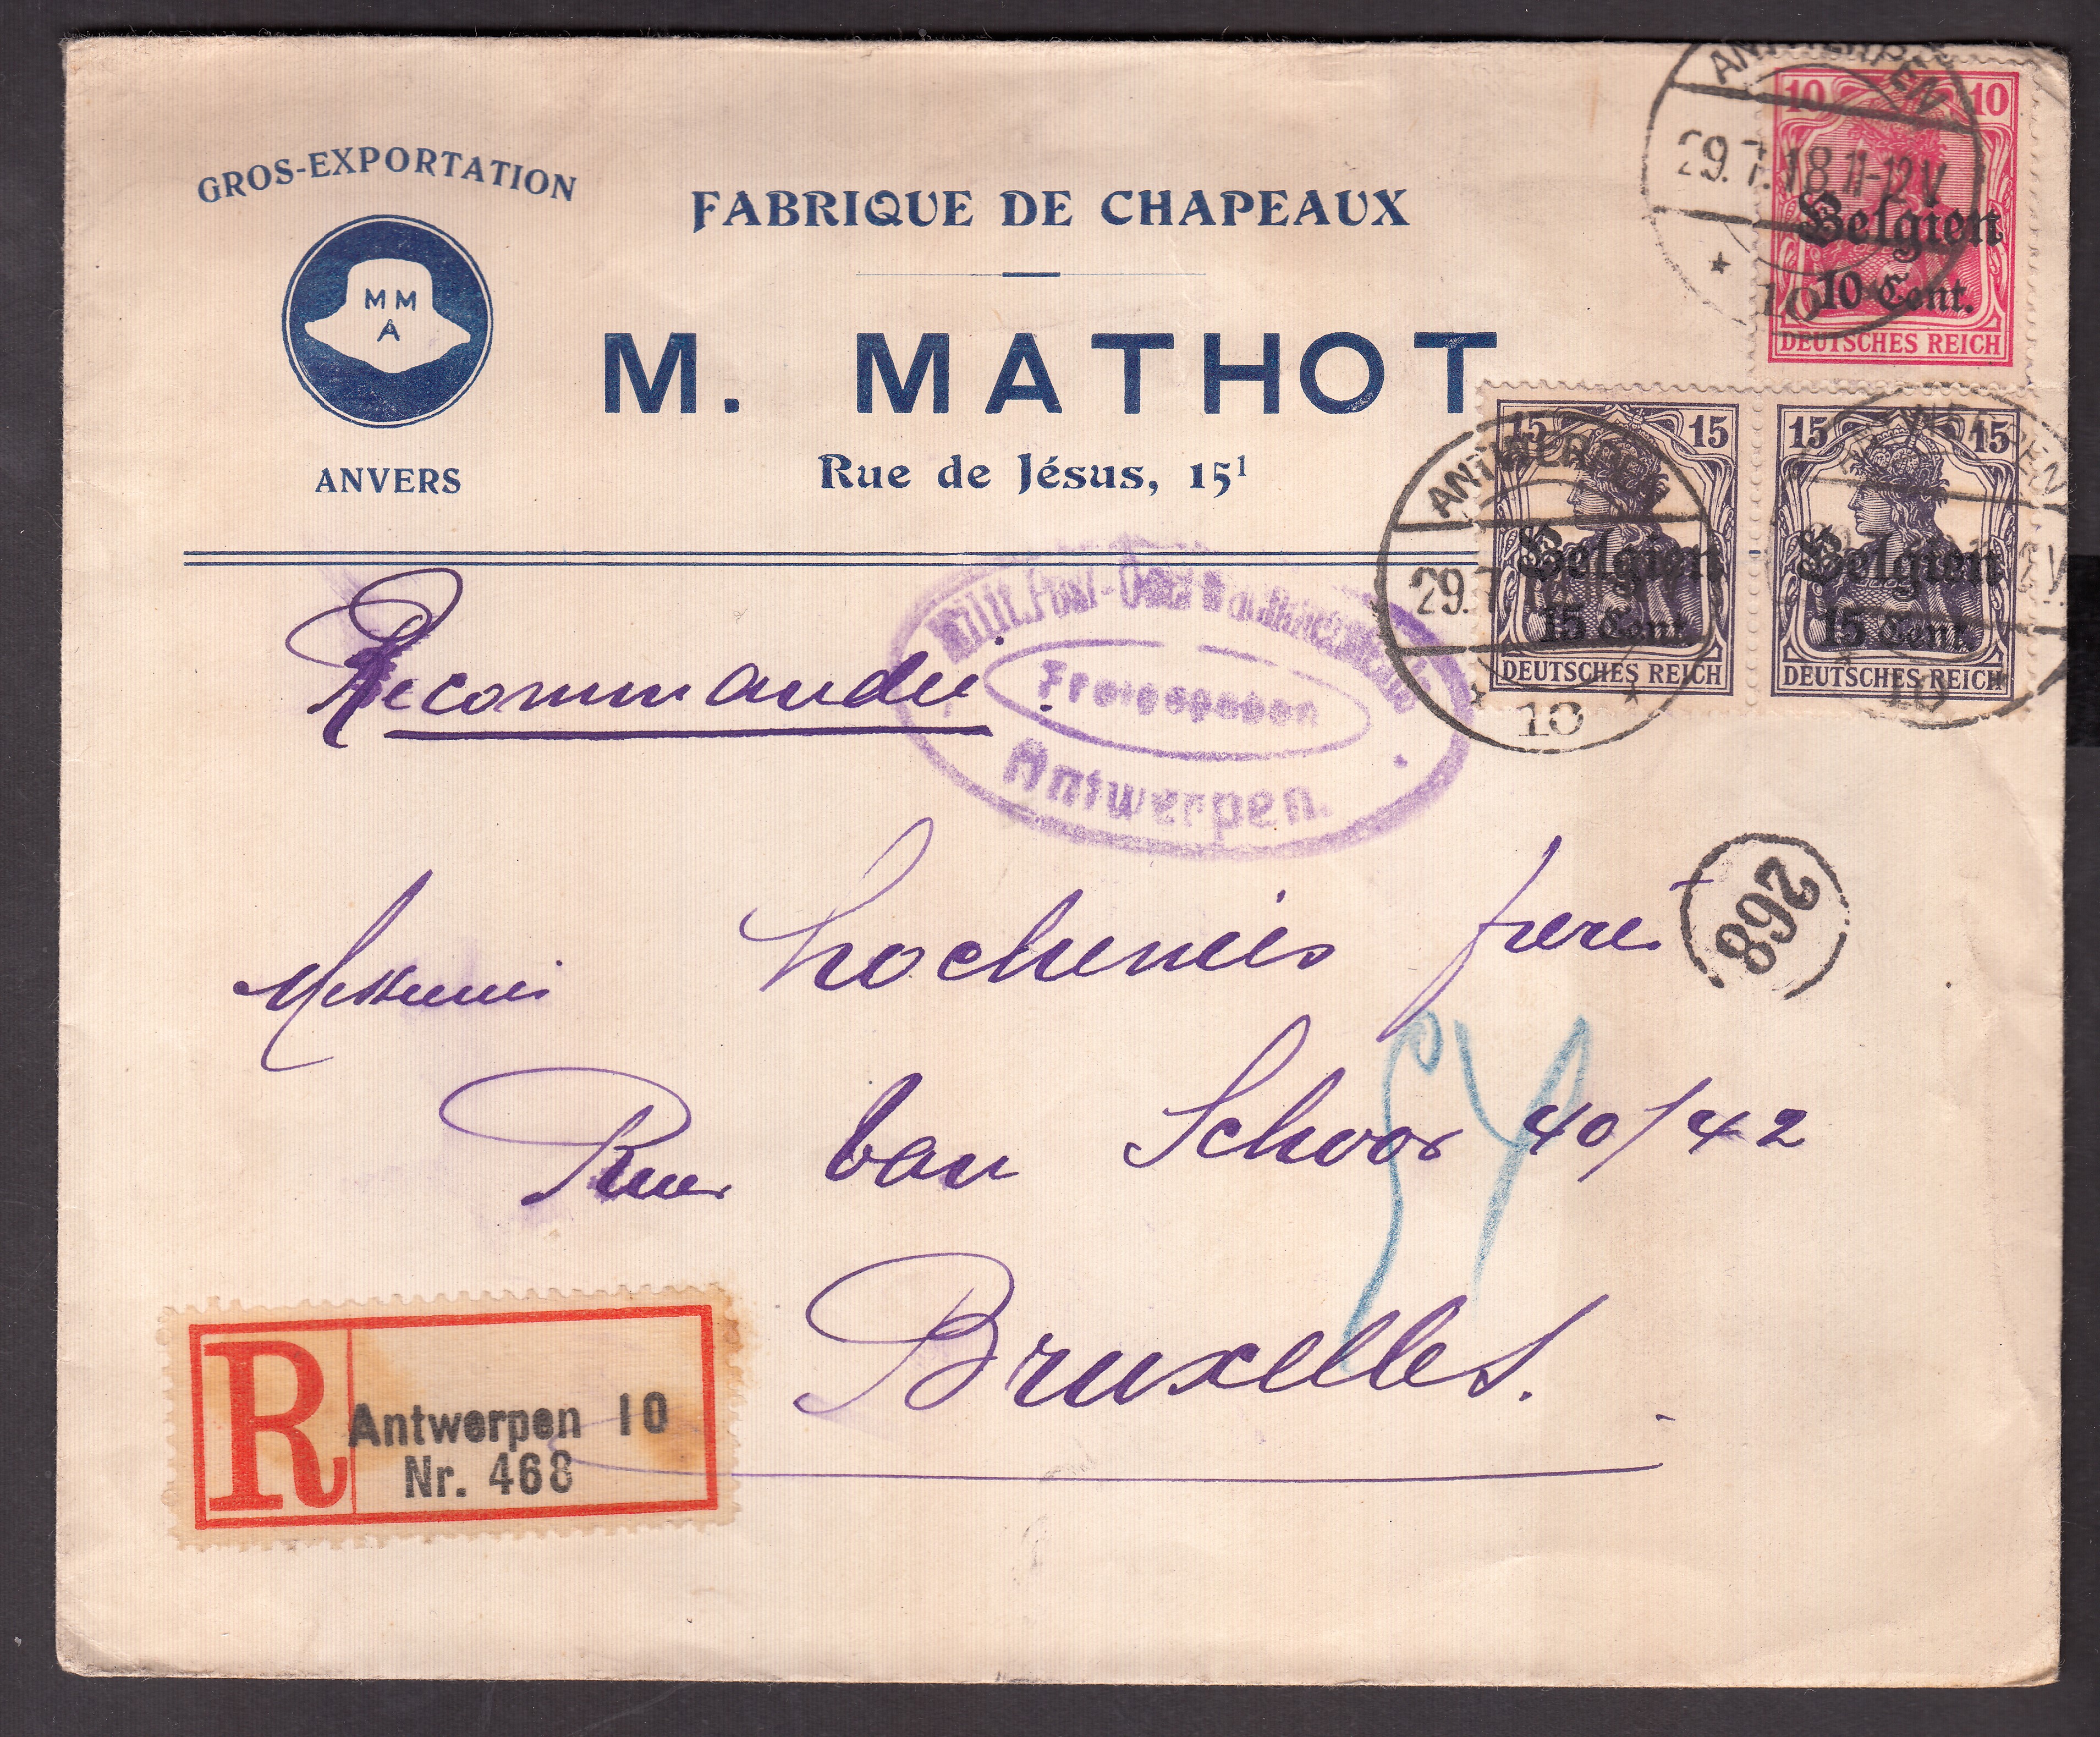 GROS-EXPORTATION
MM
A
ANVERS
FABRIQUE DE CHAPEAUX
M. MATHOT
Rue de Jésus, 15¹
ANTWERPEN
29.7.18.11-12V
10
10 10
Belgien
10 Cent.
DEUTSCHES REICH
15 15
Belgien
15 Cent.
DEUTSCHES REICH
ANTWERPEN
29.7
10
15 15
Belgien
15 Cent.
DEUTSCHES REICH
10
Recommandée
Freigegeben
Antwerpen.
268
frère
Rue van Schoor 40/42
Bruxelles.
54
R
Antwerpen 10
Nr. 468